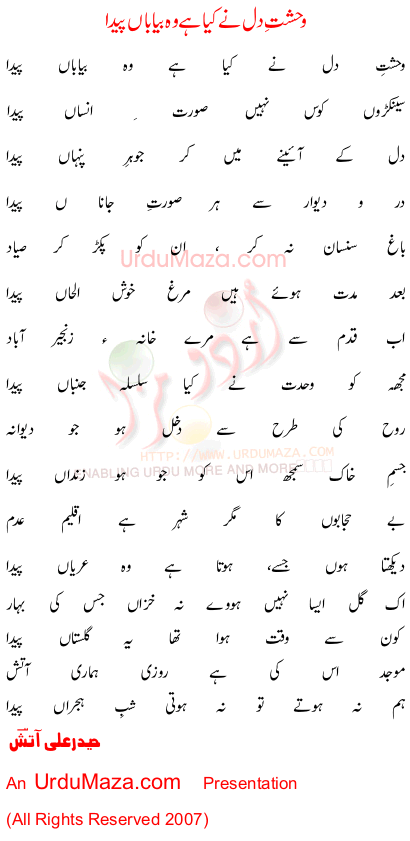 وحشتِ دل نے کیا ہے وہ بیاباں پیدا
وحشتِ دل نے کیا ہے وہ بیاباں پیدا
سینکڑوں کوس نہیں صورت ِ انساں پیدا
دل کے آئینے میں کر جوہرِ پنہاں پیدا
در و دیوار سے ہر صورتِ جانا ں پیدا
باغ سنسان نہ کر ، ان کو پکڑ کر صیاد
بعد مدت ہوئے ہیں مرغ خوش الحاں پیدا
اب قدم سے ہے مرے خانہ ء زنجیر آباد
مجھ کو وحدت نے کیا سلسلہ جنباں پیدا
روح کی طرح سے دخل ہو جو دیوانہ
جسمِ خاک سمجھ اس کو جو ہو زنداں پیدا
بے حجابوں کا مگر شہر ہے اقلیم عدم
دیکھتا ہوں جسے، ہوتا ہے وہ عریاں پیدا
اک گل ایسا نہیں ہووے نہ خزاں جس کی بہار
کون سے وقت ہوا تھا یہ گلستاں پیدا
موجد اس کی ہے روزی ہماری آتش
ہم نہ ہوتے تو نہ ہوتی شبِ ہجراں پیدا
حیدرعلی آتش
An UrduMaza.com Presentation
(All Rights Reserved 2007)
UrduMaza.com
اردو مزا
HTTP://WWW.URDUMAZA.COM
ENABLING URDU MORE AND MORE